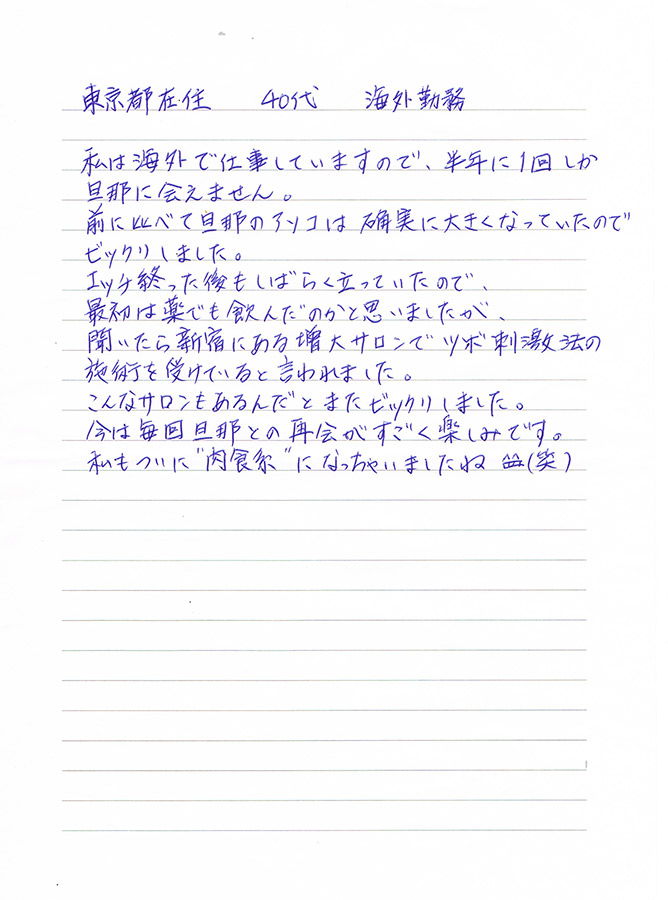 東京都在住　40代　海外勤務
私は海外で仕事していますので、半年に1回しか
旦那に会えません。
前に比べて旦那のアソコは確実に大きくなっていたので
ビックリしました。
エッチ終った後もしばらく立っていたので、
最初は薬でも飲んだのかと思いましたが、
聞いたら新宿にある増大サロンでツボ刺激法の
施術を受けていると言われました。
こんなサロンもあるんだとまたビックリしました。
今は毎回旦那との再会がすごく楽しみです。
私もついに"肉食系"になっちゃいましたね (笑)